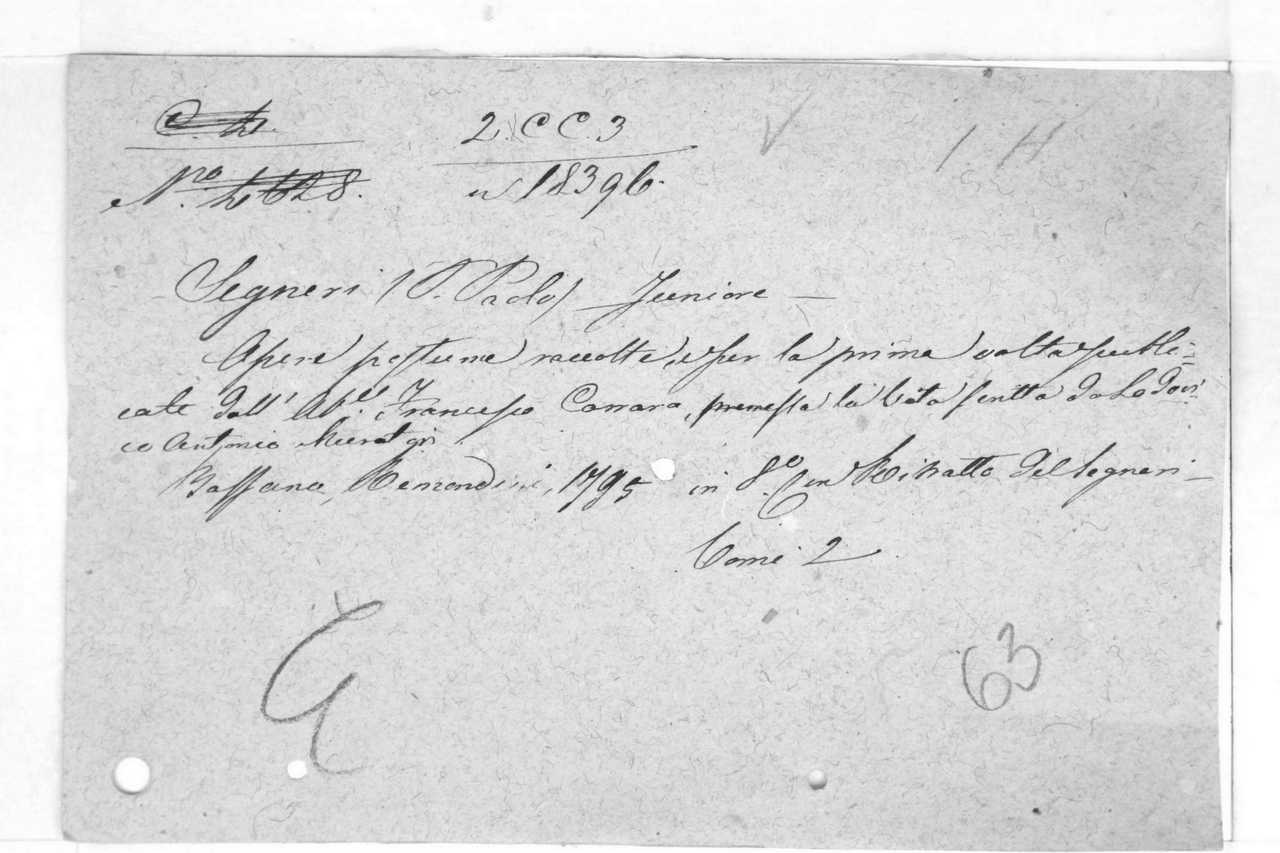 2. C C. 3
Nro. 4628.
n 18396.
Segneri (P. Paolo) Juniore —
Opere postume raccolte, e per la prima volta pubbli-
cate dall' Francesco Carrara, premessa la Vita scritta da Lodovi-
co Antonio Muratori
Bassano, Remondini, 1795 in 8o. Con Ritratto del Segneri —
Tomi 2
63